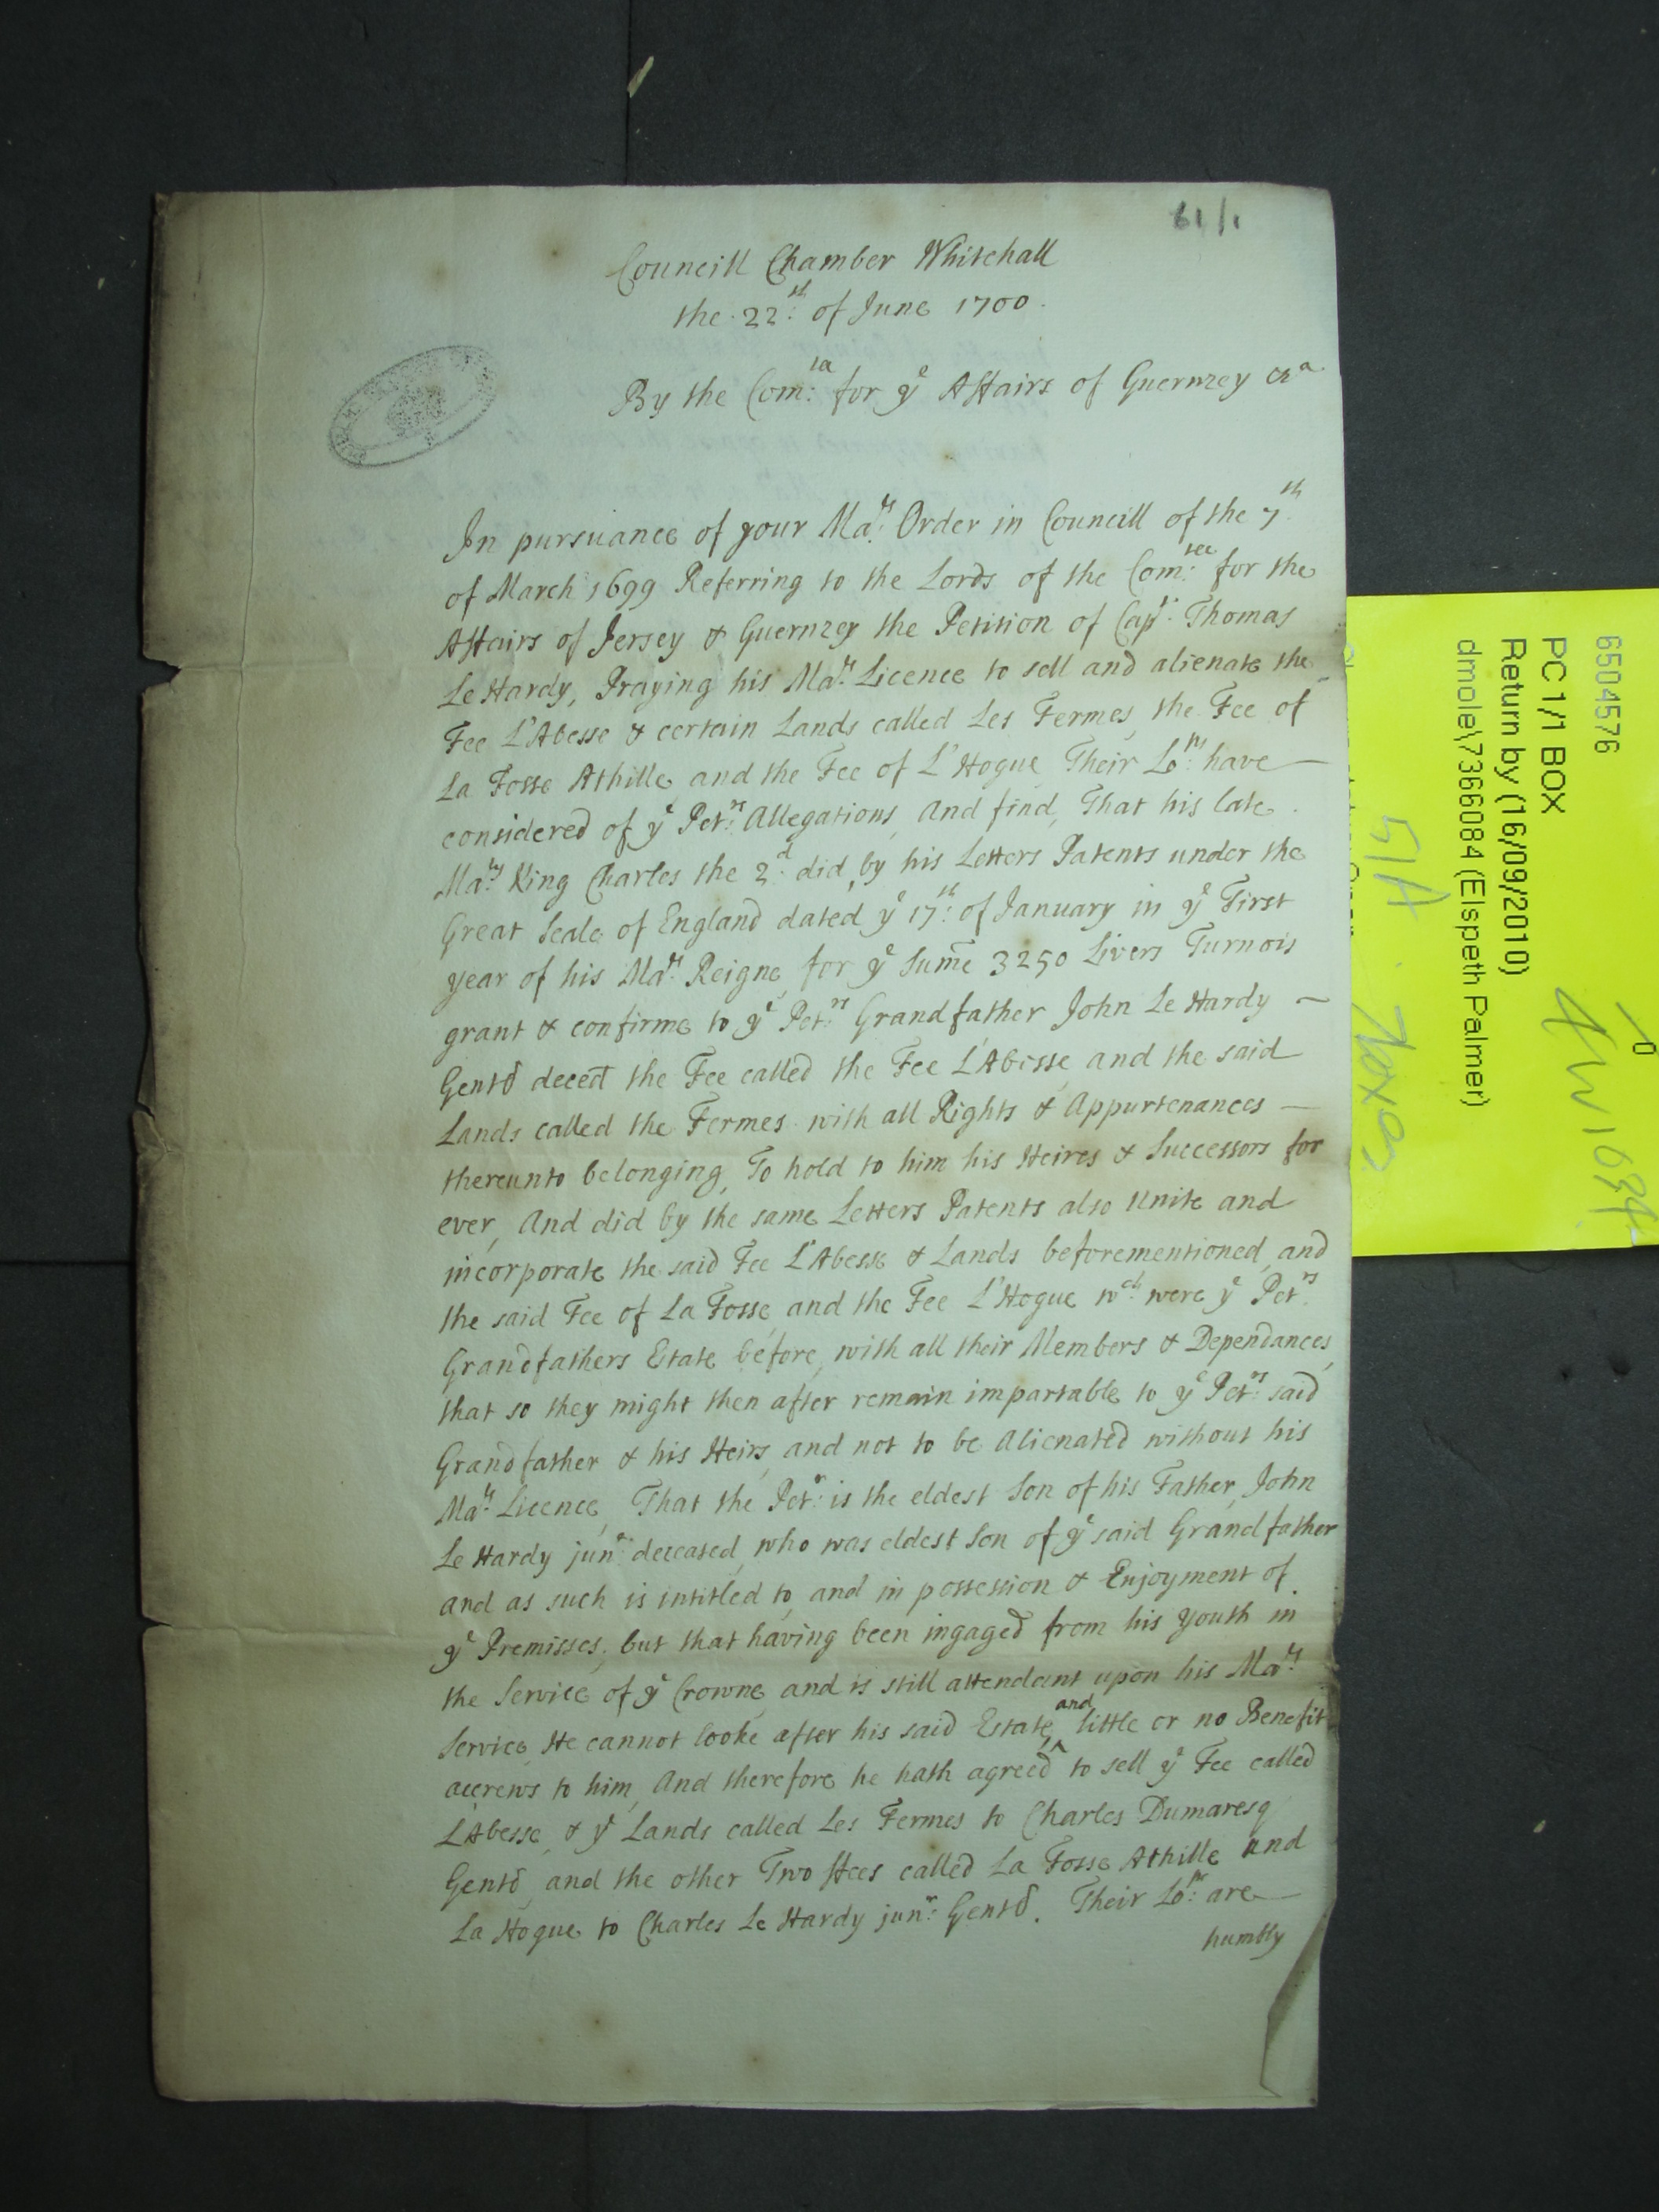 61/1
Councill Chamber Whitehall
the 22th of June 1700.
By the Com: for ye Affairs of Guernzey &ca
In pursuance of your Maty's Order in Councill of the 7th
of March 1699 Referring to the Lords of the Com:tee for the
Affairs of Jersey & Guernzey the Petition of Capt. Thomas
Le Hardy, Praying his Mats Licence to sell and alienate the
Fee L'Abesse & certain Lands called Les Fermes, the Fee of
La Fosse Athille, and the Fee of L'Hogue, Their Lo:pps have
considered of ye Petrs Allegations, And find, That his late
Maty King Charles the 2d did, by his Letters Patents under the
Great Seale of England dated ye 17th: of January in ye First
year of his Mats Reigne, for ye Sume 3250 Livers Turnois
grant & confirme to ye Petrs Grandfather John Le Hardy
Gentd deced the Fee called the Fee L'Abisse, and the said
Lands called the Fermes with all Rights & Appurtenances
thereunto belonging, To hold to him his Heires & Successors for
ever, And did by the same Letters Patents also Unite and
incorporate the said Fee L'Abesse & Lands beforementioned, and
the said Fee of La Fosse, and the Fee L'Hogue wch were ye Petrs
Grandfathers Estate before, with all their Members & Dependances,
that so they might then after remain impartable to ye Petrs said
Grandfather & his Heirs, and not to be Alienated without his
Mats Licence, That the Petr is the eldest Son of his Father, John
Le Hardy junr deceased, who was eldest Son of ye said Grandfather
and as such is intitled to, and in possession & Enjoyment of
ye Premisses, but that having been ingaged from his youth in
the Service of ye Crowne, and is still attendant upon his Mats
Service, He cannot looke after his said Estate, and little or no Benefit
accrews to him, And therefore he hath agreed to sell ye Fee called
L'Abesse, & ye Lands called Les Fermes to Charles Dumaresq
Gentd, and the other Two ffees called La Fosse Athille and
La Hogue to Charles Le Hardy junr: Gentd. Their Lo:pps are
humbly
6504576
PC 1/1 BOX
Return by (16/09/2010)
dmole\7366084 (Elspeth Palmer)